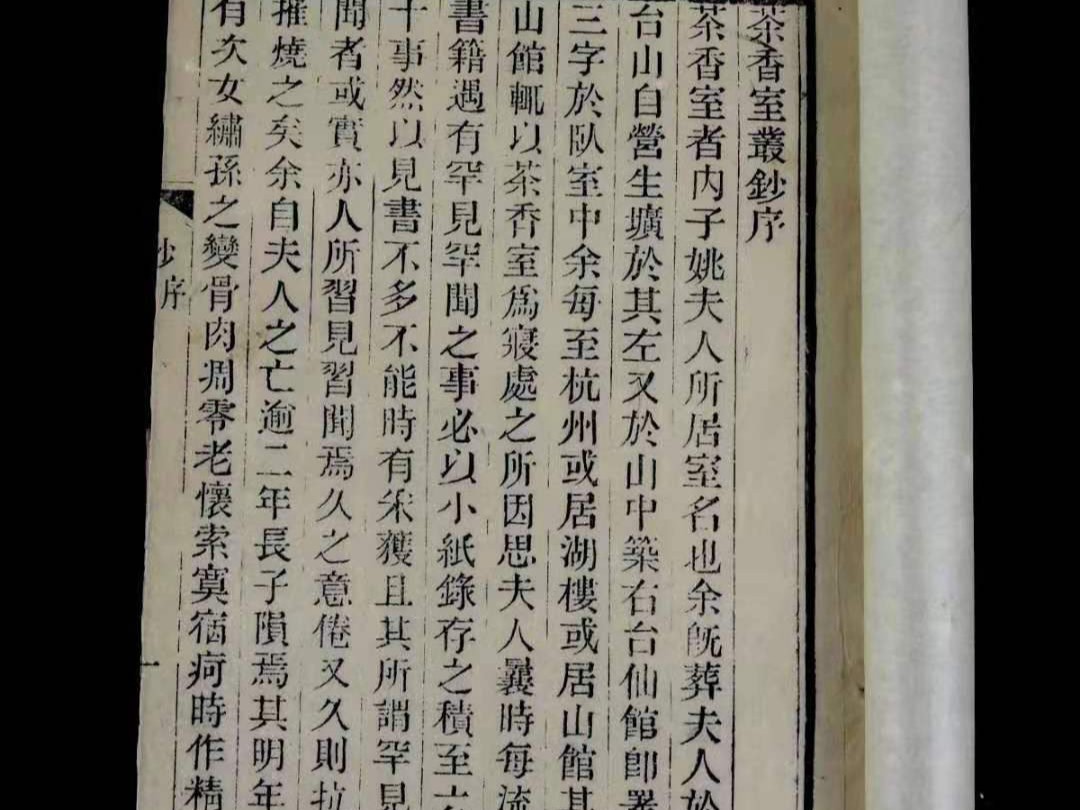 茶香室叢鈔序
茶香室者内子姚夫人所居室名也余旣葬夫人於
台山自營生壙於其左又於山中築右台仙館卽署
三字於臥室中余每至杭州或居湖樓或居山館其
山館輒以茶香室爲寢處之所因思夫人曩時每流
書籍遇有罕見罕聞之事必以小紙錄存之積至
十事然以見書不多不能時有采獲且其所謂罕見
聞者或實亦人所習見習聞焉久之意倦又久則拉
摧燒之矣余自夫人之亡逾二年長子隕焉其明年
有次女繡孫之變骨肉凋零老懷索寞宿疴時作精
序
一